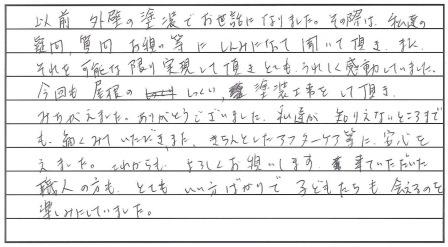 以前 外壁の塗装でお世話になりました。その際は、私達の
疑問、質問 お願い等に しんみになって聞いて頂き、また
それを可能な限り実現して頂き とても、うれしく感動していました。
今回も 屋根の しっくい、塗装工事をして頂き、
ありがとうございました。私達が 知りえないところまで
も、細くみていただき、また、きちんとしたアフターケア等に、安心を
えました。これからも、よろしくお願いします 来ていただいた
職人の方も、とても いい方ばかりで 子どもたちも 会えるのを
楽しみにしていました。